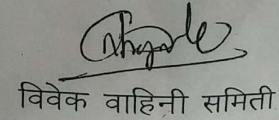 विवेक वाहिनी समिती